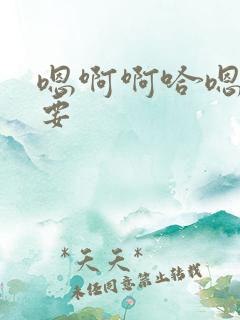 嗯啊啊哈嗯
要
*天天*
未经同意禁止转载